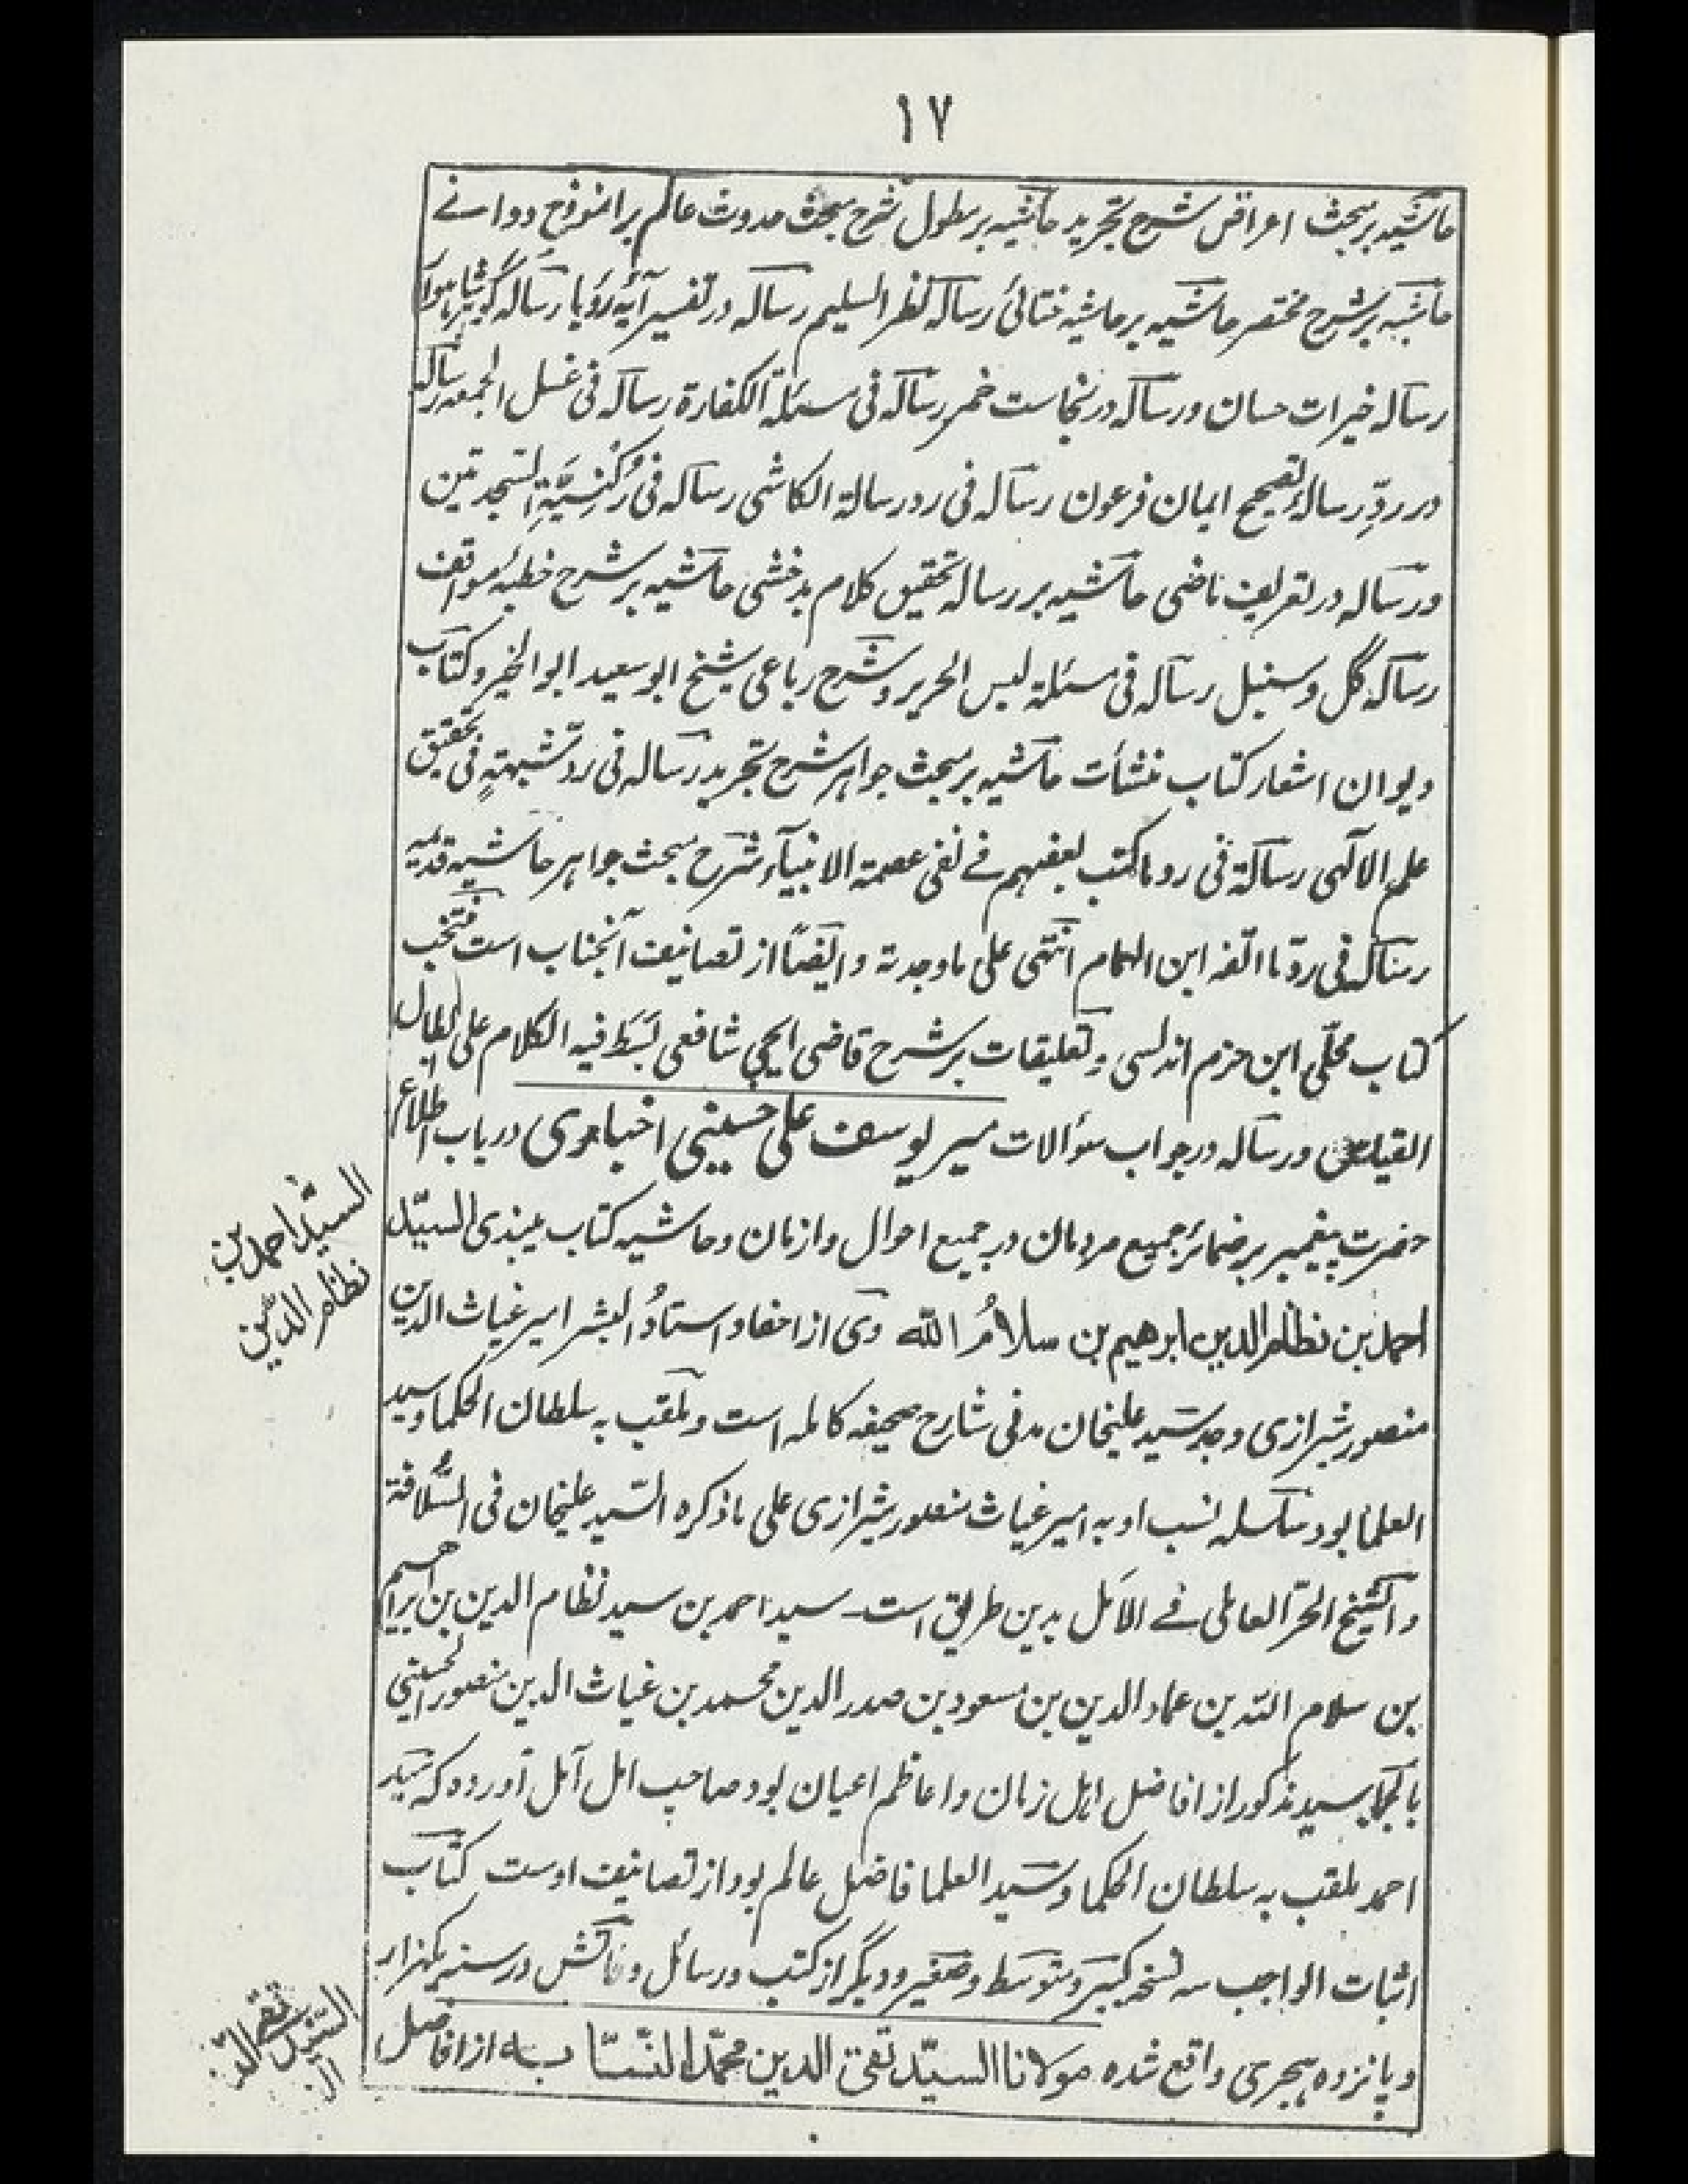 ١٧
حاشیه بر مبحث اعراض شرح تجرید حاشیه بر مطول شرح مبحث حدوث عالم بر انموذج دوانے
حاشیه بر شرح مختصر حاشیه بر حاشیه ختائی رساله نظر السلیم رساله در تفسیر آیهٔ رؤیا رساله
رساله خیرات حسان و رساله در نجاست خمر رساله فی مسئلة الکفارة رساله فی غسل الجمعه رساله
در ردّ رساله تصحیح ایمان فرعون رساله فی رد رسالة الکاشی رساله فی رُکنِیَّةِ السجدتین
و رساله در تعریف ماضی حاشیه بر رساله تحقیق کلام بدخشی حاشیه بر شرح خطبهٔ مواقف
رساله گل و سنبل رساله فی مسئلة لبس الحریر و شرح رباعی شیخ ابو سعید ابو الخیر و کتاب
دیوان اشعار کتاب منشأت حاشیه بر مبحث جواهر شرح تجرید رساله فی ردّ شبهةٍ فی تحقیق
علم الآلهی رسالة فی رد ما کتب بعضهم فے نفی عصمة الانبیآء شرح مبحث جواهر حاشیه قدیمه
رساله فی ردّ ما الّفه ابن الهمام انتهی علی ما وجدته و ایضًا از تصانیف آنجناب است منتخب
کتاب محلّی ابن حزم اندلسی و تعلیقات بر شرح قاضی ایجی شافعی بَسَطَ فیه الکلام علی ابطال
القیاس و رساله در جواب سؤالات میر یوسف علی حسینی اخباری در باب اطلاع
حضرت پیغمبر بر ضمائر جمیع مردمان در جمیع احوال و ازمان و حاشیه کتاب میبذی السیّد
احمد بن نظام الدین ابرهیم بن سلامُ اللّه وی از احفاد استادُ البشر امیر غیاث الدین
منصور شیرازی و جد سید علیخان مدنی شارح صحیفه کامله است و ملقب به سلطان الحکما و سید
العلما بود سلسله نسب او به امیر غیاث منصور شیرازی علی ما ذکره السّید علیخان فی السُّلافة
و الشیخ الحرّ العاملی فے الامل بدین طریق است سید احمد بن سید نظام الدین بن ابراهیم
بن سلام اللّه بن عماد الدین بن مسعود بن صدر الدین محمد بن غیاث الدین منصور الحسینی
بالجمله سید مذکور از افاضل اهل زمان و اعاظم اعیان بود صاحب امل آمل آورده که سید
احمد ملقب به سلطان الحکما و سید العلما فاضل عالم بود از تصانیف اوست کتاب
اثبات الواجب سه نسخه کبیر و متوسط و صغیر و دیگر از کتب و رسائل و فاتش در سنه یکهزار
و پانزده هجری واقع شده مولانا السیّد تقی الدین محمّد النسّابه از افاضل
السیّد احمد بن
نظام الدّین
السیّد تقی الدّین